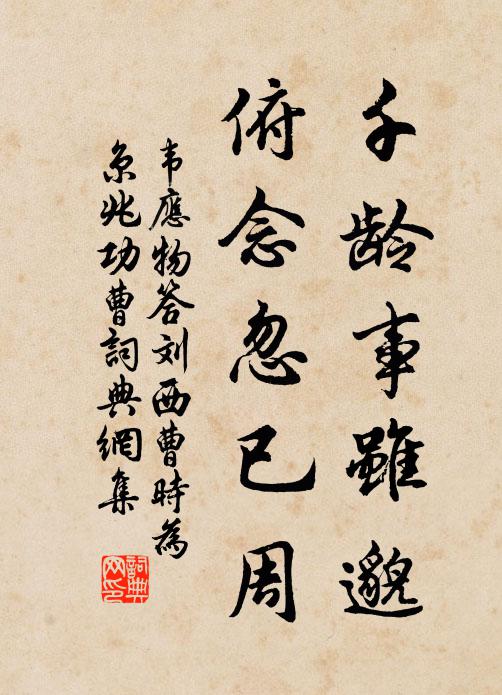 千龄事雖邈
俯念忽已周
韦應物答刘西曹時為
京兆功曹詞典網集
詞典网印